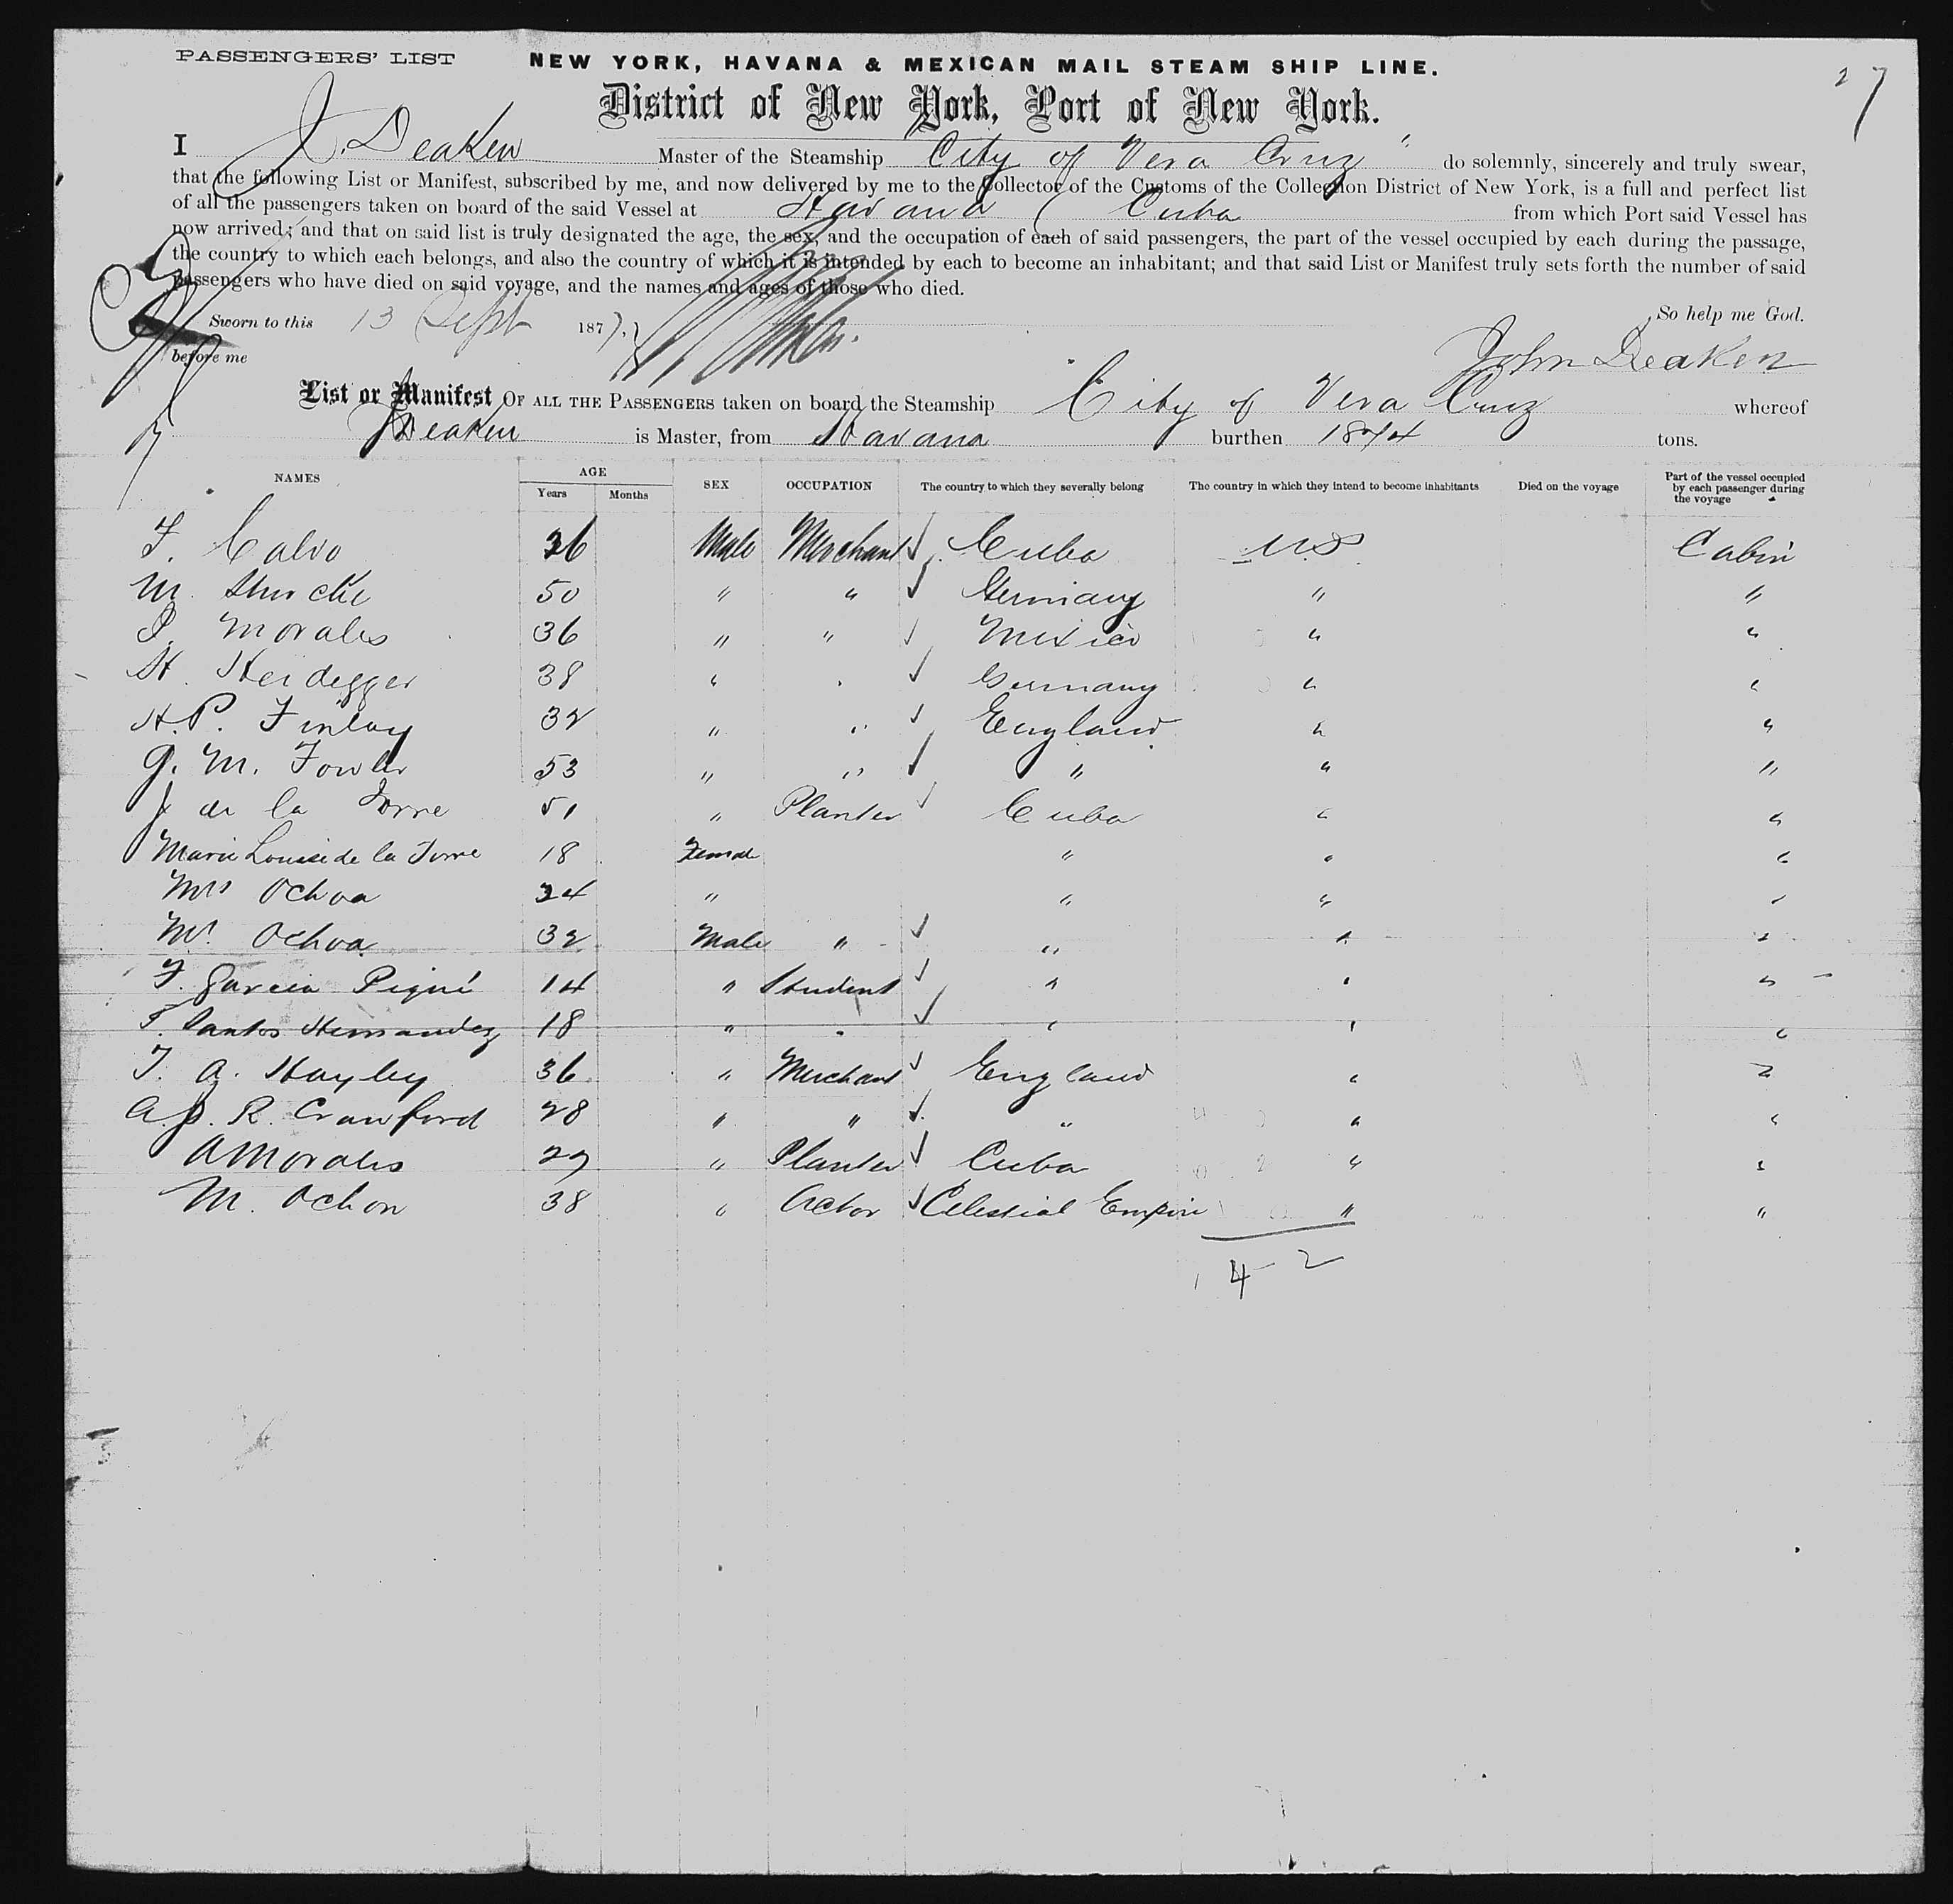 27
PASSENGERS' LIST NEW YORK, HAVANA & MEXICAN MAIL STEAM SHIP LINE.
District of New York, Port of New York.
I J. Deaken Master of the Steamship "City of Vera Cruz" do solemnly, sincerely and truly swear,
that the following List or Manifest, subscribed by me, and now delivered by me to the Collector of the Customs of the Collection District of New York, is a full and perfect list
of all the passengers taken on board of the said Vessel at Havana Cuba from which Port said Vessel has
now arrived; and that on said list is truly designated the age, the sex, and the occupation of each of said passengers, the part of the vessel occupied by each during the passage,
the country to which each belongs, and also the country of which it is intended by each to become an inhabitant; and that said List or Manifest truly sets forth the number of said
passengers who have died on said voyage, and the names and ages of those who died.
So help me God.
Sworn to this 13 Sept 1877,
before me
John Deaken
List or Manifest OF ALL THE PASSENGERS taken on board the Steamship City of Vera Cruz whereof
J Deaken is Master, from Havana burthen 1874 tons.
NAMES AGE Years Months SEX OCCUPATION The country to which they severally belong The country in which they intend to become inhabitants Died on the voyage Part of the vessel occupied by each passenger during the voyage
F. Calvo 26 Male Merchant Cuba U.S. Cabin
M. 50 " " Germany " "
P. Morales 36 " " Mexico " "
H. Heidegger 38 " " Germany " "
H. P. Finlay 32 " " England " "
G. M. Fowler 53 " " " " "
J de la Torre 51 " Planter Cuba " "
Marie Louise de la Torre 18 Female " " "
Mrs Ochoa 24 " " " "
Mr. Ochoa 32 Male " " " "
F. Garcia Piqué 14 " Student " " "
F. Santos Hernandez 18 " " " " "
T. A. Hayley 36 " Merchant England " "
A. P. R. Crawford 28 " " " " "
A Morales 27 " Planter Cuba " "
M. Ochon 38 " Actor Celestial Empire " "
4 2